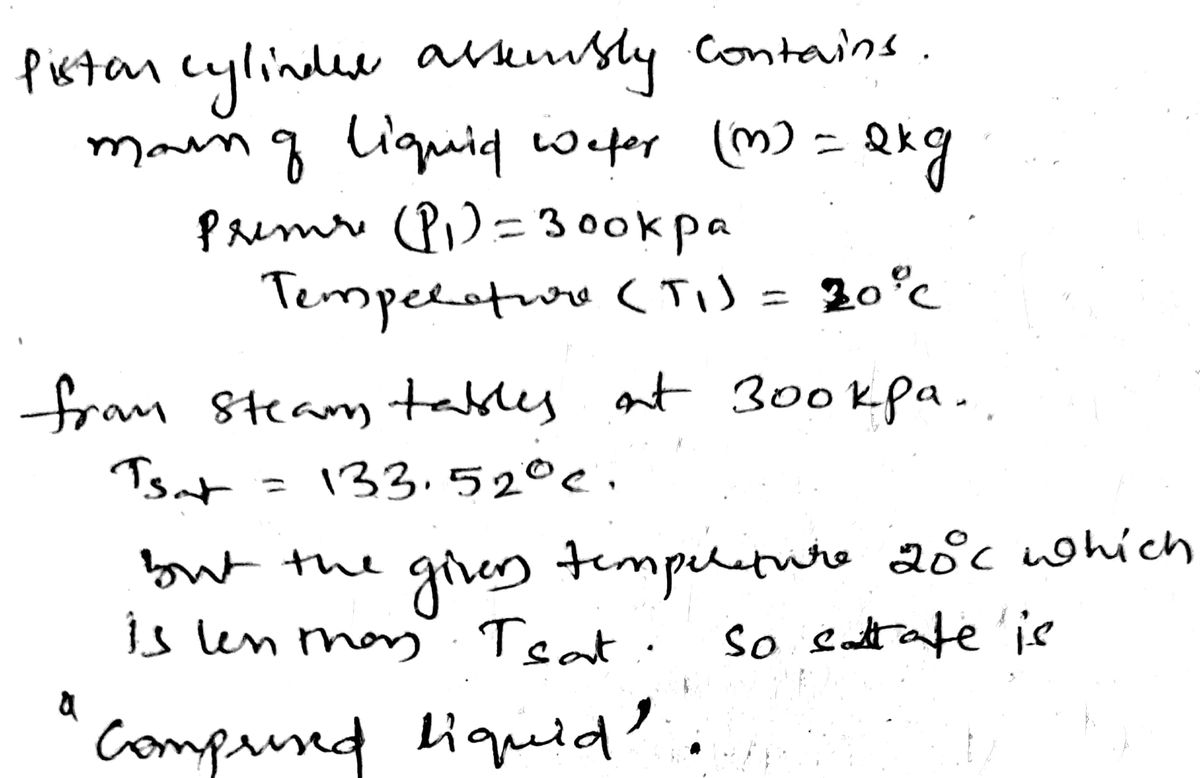 Piston cylinder assembly contains.
mass of liquid water (m) = 2kg
Pressure (P1) = 300kpa
Temperature (T1) = 20°C
from steam tables at 300kPa.
Tsat = 133.52°C.
but the given temperature 20°C which
is less than Tsat. So state is
"Compressed liquid".